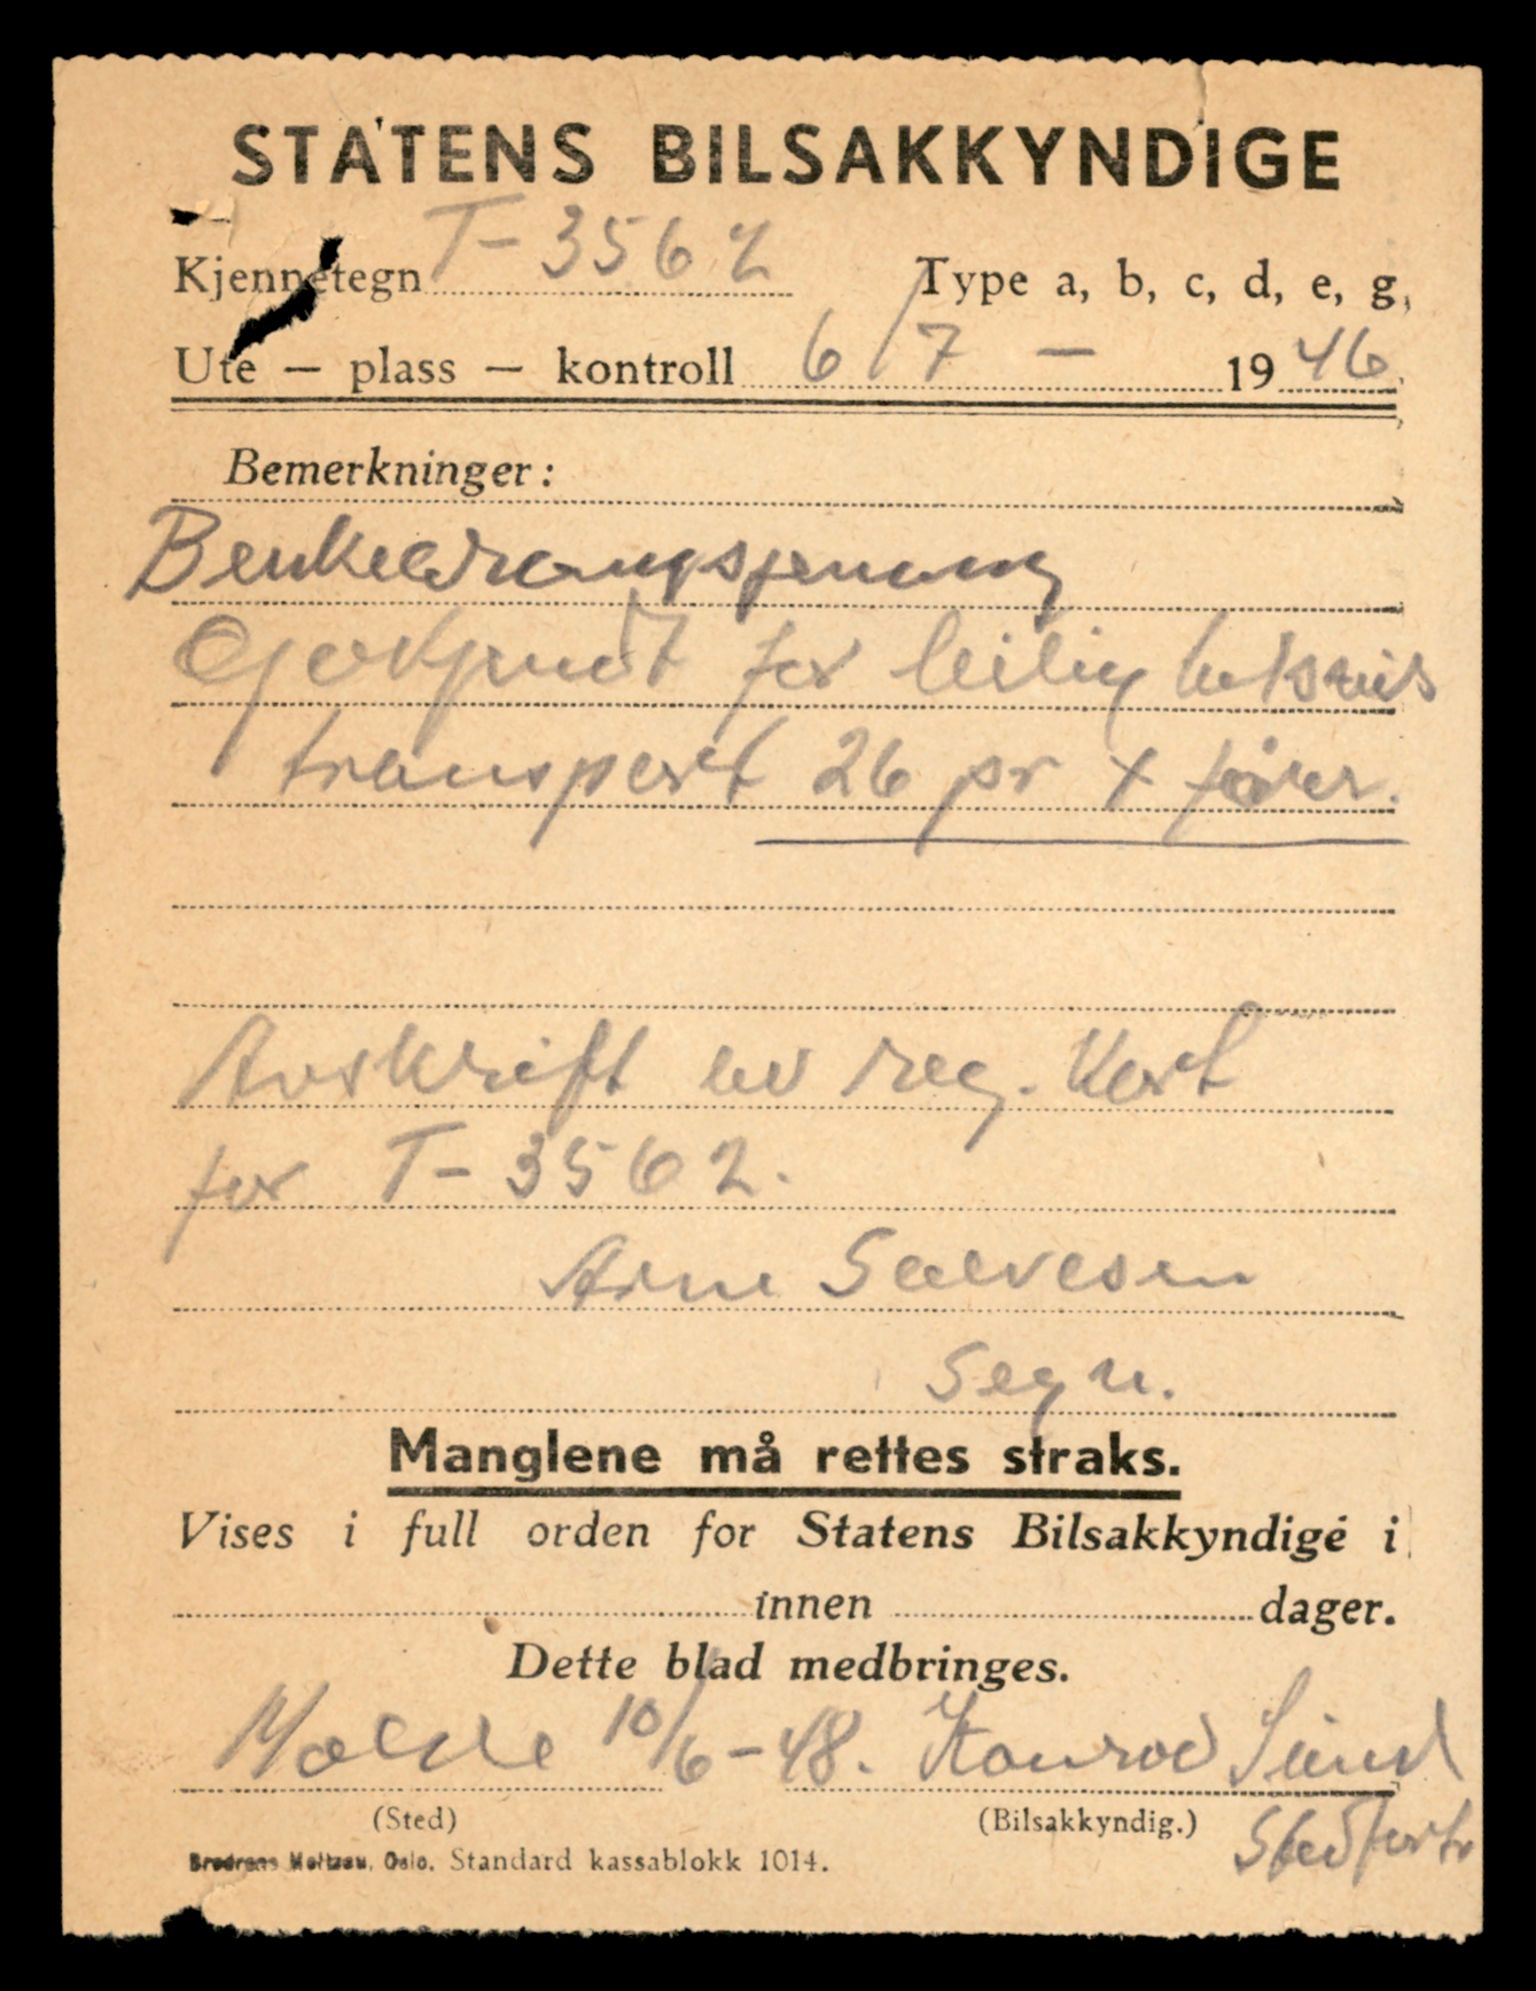 STATENS BILSAKKYNDIGE
Kjennetegn T-3562 Type a, b, c, d, e, g,
Ute — plass — kontroll 6/7 — 1946
Bemerkninger:
Godkjendt for leilig
transport 26 pr + fører.
Avskrift av reg. Kort
for T-3562.
Arne Salvesen
Manglene må rettes straks.
Vises i full orden for Statens Bilsakkyndige i
innen dager.
Dette blad medbringes.
Molde 10/6-48. Konrad Sund
(Sted) (Bilsakkyndig.) Stedfortr
Brødrene Moltzau, Oslo. Standard kassablokk 1014.